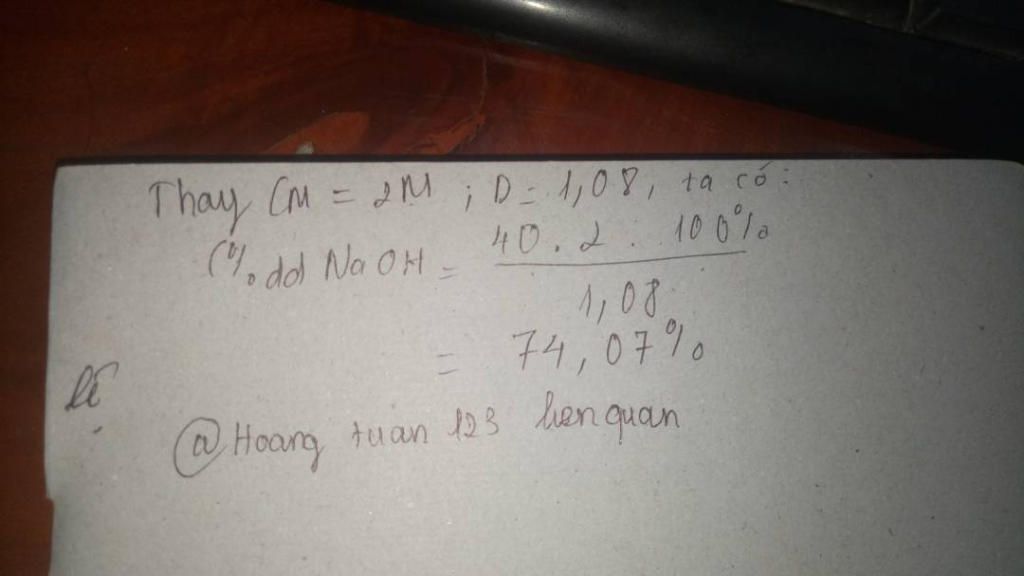 Thay CM = 2M ; D = 1,08, ta có:
C% dd NaOH = 40 . 2 . 100% / 1,08
= 74,07%
@Hoang tuan 123 lienquan